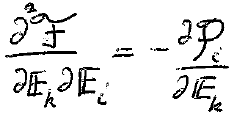 $\frac{\partial^2 \tilde{\mathcal{F}}}{\partial \mathbb{E}_k \partial \mathbb{E}_i} = -\frac{\partial \mathcal{P}_i}{\partial \mathbb{E}_k}$